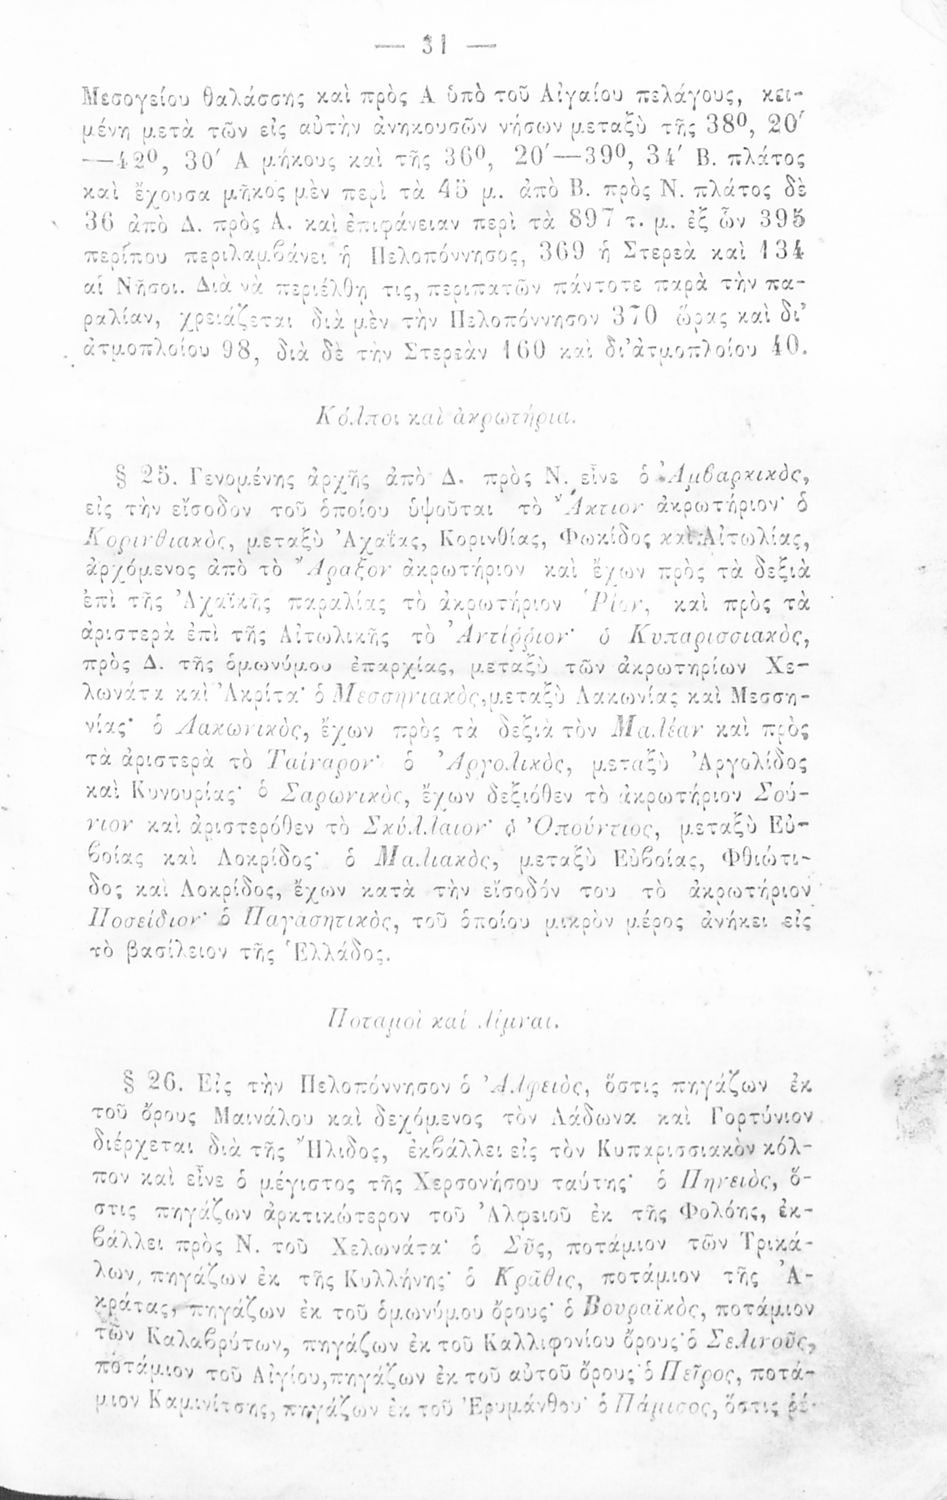 — 31 —
Μεσογείου θαλάσσης καὶ πρὸς Α ὑπὸ τοῦ Αἰγαίου πελάγους, κει-
μένη μετὰ τῶν εἰς αὐτὴν ἀνηκουσῶν νήσων μεταξὺ τῆς 38⁰, 20′
—42⁰, 30′ Α μήκους καὶ τῆς 36⁰, 20′—39⁰, 34′ Β. πλάτος
καὶ ἔχουσα μῆκος μὲν περὶ τὰ 45 μ. ἀπὸ Β. πρὸς Ν. πλάτος δὲ
36 ἀπὸ Δ. πρὸς Α. καὶ ἐπιφάνειαν περὶ τὰ 897 τ. μ. ἐξ ὧν 395
περίπου περιλαμβάνει ἡ Πελοπόννησος, 369 ἡ Στερεὰ καὶ 134
αἱ Νῆσοι. Διὰ νὰ περιέλθῃ τις, περιπατῶν πάντοτε παρὰ τὴν πα-
ραλίαν, χρειάζεται διὰ μὲν τὴν Πελοπόννησον 370 ὥρας καὶ δι’
ἀτμοπλοίου 98, διὰ δὲ τὴν Στερεὰν 160 καὶ δι’ἀτμοπλοίου 40.
Κόλποι καὶ ἀκρωτήρια.
§ 25. Γενομένης ἀρχῆς ἀπὸ Δ. πρὸς Ν. εἶνε ὁ Ἀμβαρκικὸς,
εἰς τὴν εἴσοδον τοῦ ὁποίου ὑψοῦται τὸ Ἄκτιον ἀκρωτήριον· ὁ
Κορινθιακὸς, μεταξὺ Ἀχαΐας, Κορινθίας, Φωκίδος καὶ Αἰτωλίας,
ἀρχόμενος ἀπὸ τὸ Ἄραξον ἀκρωτήριον καὶ ἔχων πρὸς τὰ δεξιὰ
ἐπὶ τῆς Ἀχαϊκῆς παραλίας τὸ ἀκρωτήριον Ῥίον, καὶ πρὸς τὰ
ἀριστερὰ ἐπὶ τῆς Αἰτωλικῆς τὸ Ἀντίῤῥιον· ὁ Κυπαρισσιακὸς,
πρὸς Δ. τῆς ὁμωνύμου ἐπαρχίας, μεταξὺ τῶν ἀκρωτηρίων Χε-
λωνάτα καὶ Ἀκρίτα· ὁ Μεσσηνιακὸς, μεταξὺ Λακωνίας καὶ Μεσση-
νίας· ὁ Λακωνικὸς, ἔχων πρὸς τὰ δεξιὰ τὸν Μαλέαν καὶ πρὸς
τὰ ἀριστερὰ τὸ Ταίναρον· ὁ Ἀργολικὸς, μεταξὺ Ἀργολίδος
καὶ Κυνουρίας· ὁ Σαρωνικὸς, ἔχων δεξιόθεν τὸ ἀκρωτήριον Σού-
νιον καὶ ἀριστερόθεν τὸ Σκύλλαιον· ὁ Ὀπούντιος, μεταξὺ Εὐ-
βοίας καὶ Λοκρίδος· ὁ Μαλιακὸς, μεταξὺ Εὐβοίας, Φθιώτι-
δος καὶ Λοκρίδος, ἔχων κατὰ τὴν εἴσοδόν του τὸ ἀκρωτήριον
Ποσείδιον· ὁ Παγασητικὸς, τοῦ ὁποίου μικρὸν μέρος ἀνήκει εἰς
τὸ βασίλειον τῆς Ἑλλάδος.
Ποταμοὶ καὶ Λίμναι.
§ 26. Εἰς τὴν Πελοπόννησον ὁ Ἀλφειὸς, ὅστις πηγάζων ἐκ
τοῦ ὄρους Μαινάλου καὶ δεχόμενος τὸν Λάδωνα καὶ Γορτύνιον
διέρχεται διὰ τῆς Ἤλιδος, ἐκβάλλει εἰς τὸν Κυπαρισσιακὸν κόλ-
πον καὶ εἶνε ὁ μέγιστος τῆς Χερσονήσου ταύτης· ὁ Πηνειὸς, ὅ-
στις πηγάζων ἀρκτικώτερον τοῦ Ἀλφειοῦ ἐκ τῆς Φολόης, ἐκ-
βάλλει πρὸς Ν. τοῦ Χελωνάτα· ὁ Σῦς, ποτάμιον τῶν Τρικά-
λων, πηγάζων ἐκ τῆς Κυλλήνης· ὁ Κρᾶθις, ποτάμιον τῆς Ἀ-
κράτας, πηγάζων ἐκ τοῦ ὁμωνύμου ὄρους· ὁ Βουραϊκὸς, ποτάμιον
τῶν Καλαβρύτων, πηγάζων ἐκ τοῦ Καλλιφονίου ὄρους· ὁ Σελινοῦς,
ποτάμιον τοῦ Αἰγίου, πηγάζων ἐκ τοῦ αὐτοῦ ὄρους· ὁ Πεῖρος, ποτά-
μιον Καμινίτσης, πηγάζων ἐκ τοῦ Ἐρυμάνθου· ὁ Πάμισος, ὅστις ῥέ-